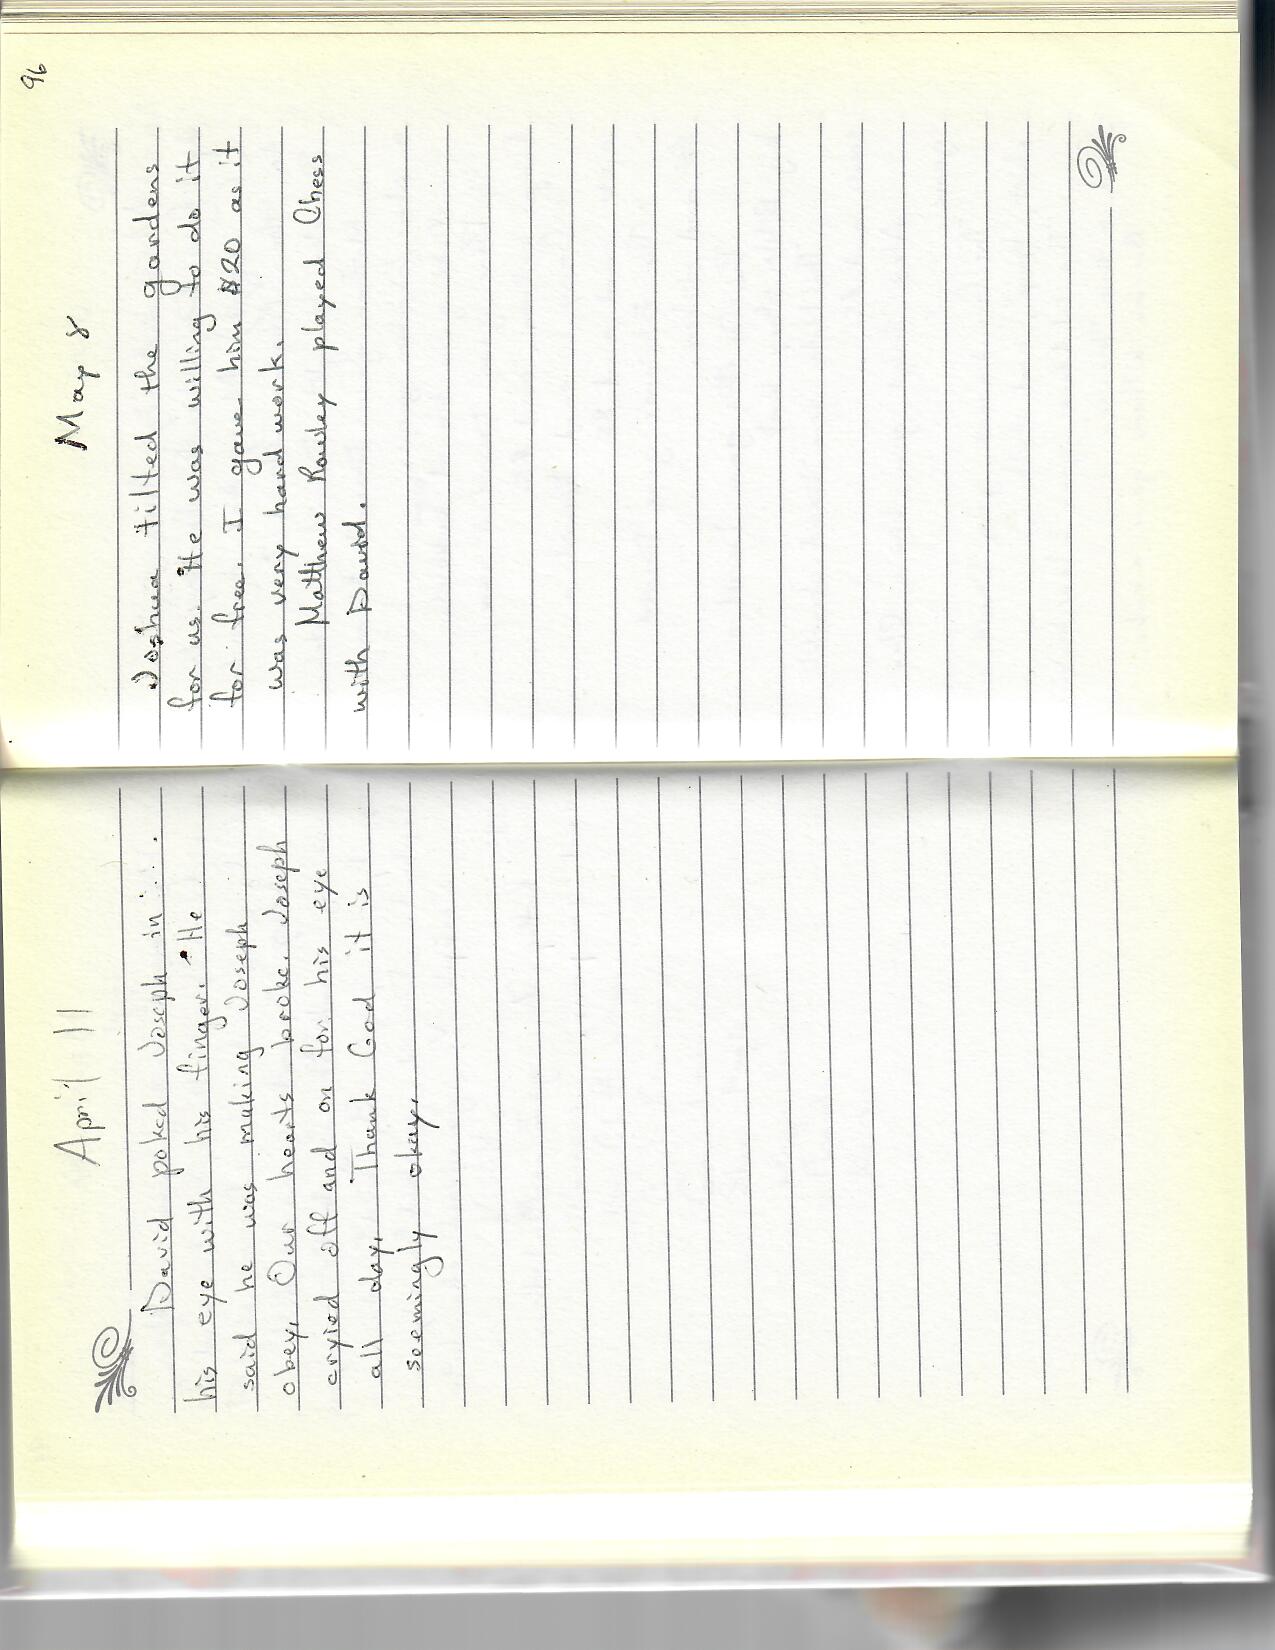 April 11
David poked Joseph in
his eye with his finger. He
said he was making Joseph
obey. Our hearts broke. Joseph
cryied off and on for his eye
all day. Thank God it is
seemingly okay.
96
May 8
Joshua tilted the gardens
for us. He was willing to do it
for free. I gave him $20 as it
was very hard work.
Matthew Rowley played Chess
with David.